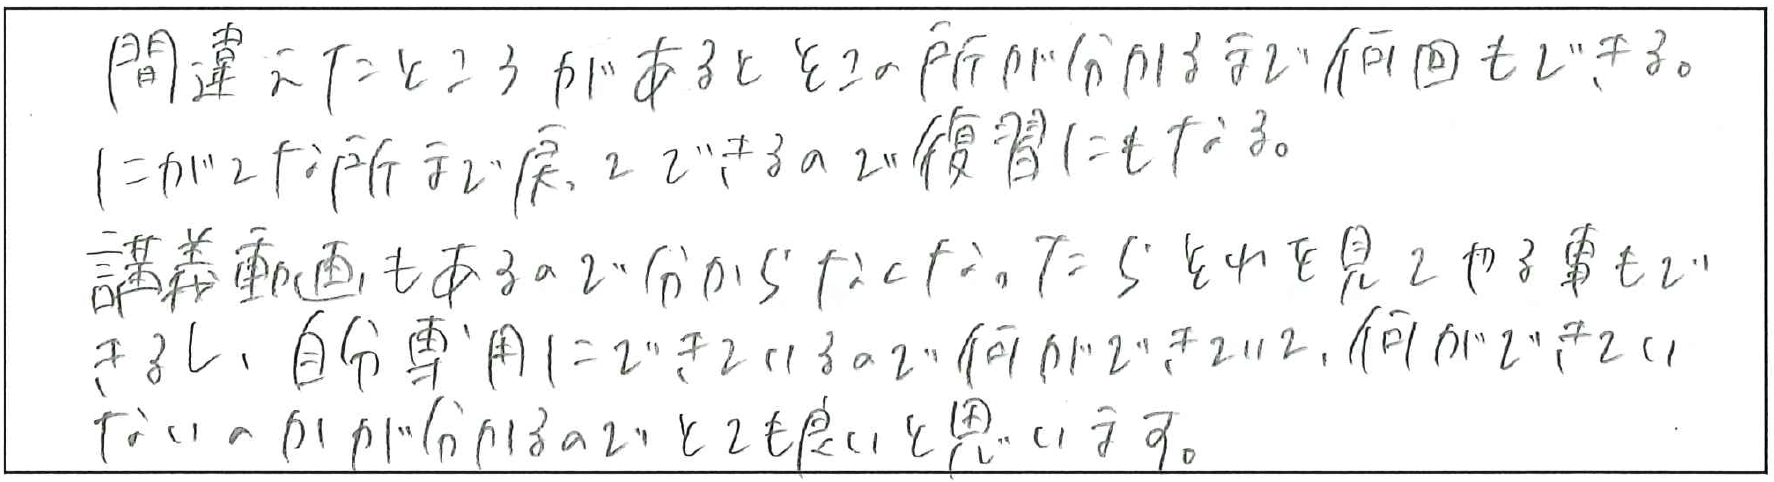 間違えたところがあるとそこの所が分かるまで何回もできる。
にがてな所まで戻ってできるので復習にもなる。
講義動画もあるので分からなくなったらそれを見てやる事もで
きるし、自分専用にできているので何ができていて、何ができてい
ないのかが分かるのでとても良いと思います。